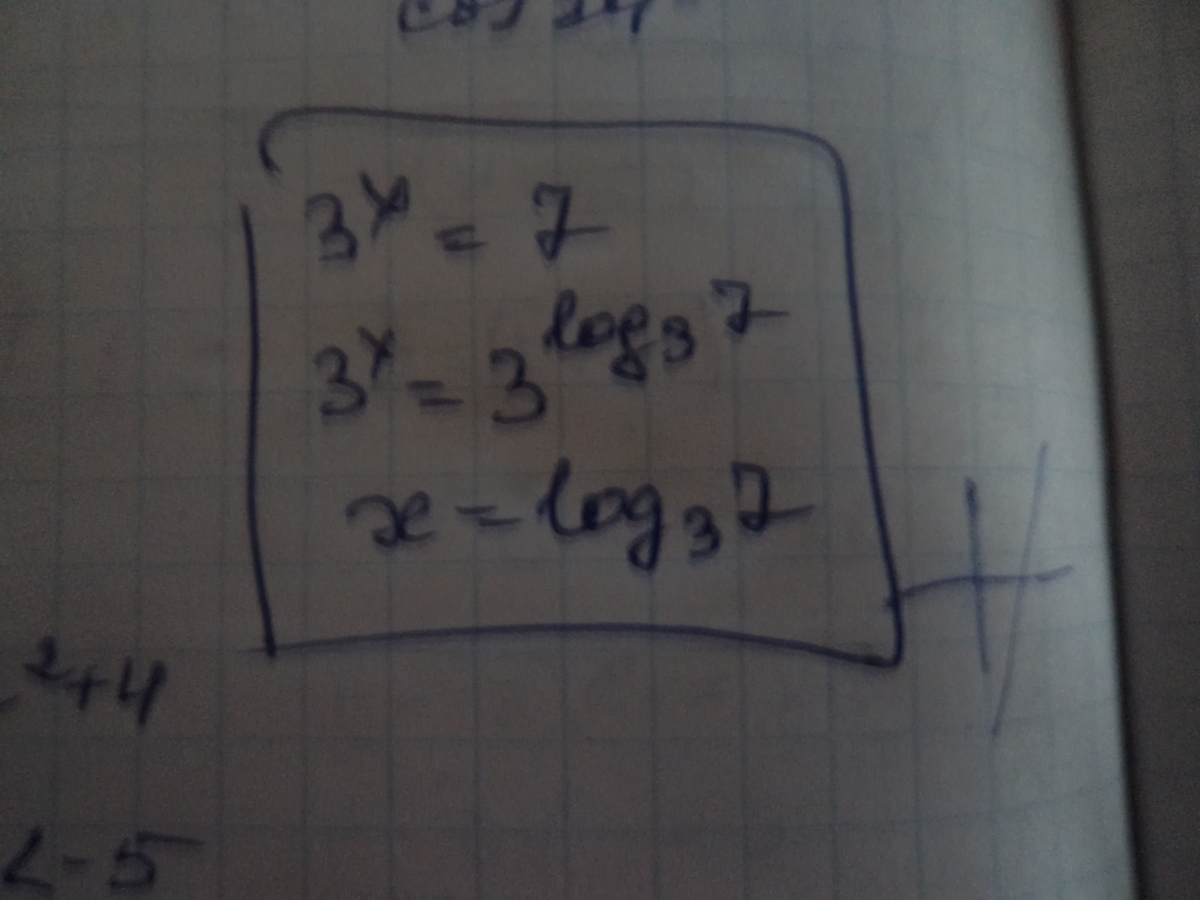 3^x = 7
3^x = 3^{log_3 7}
x = log_3 7
²+4
<-5